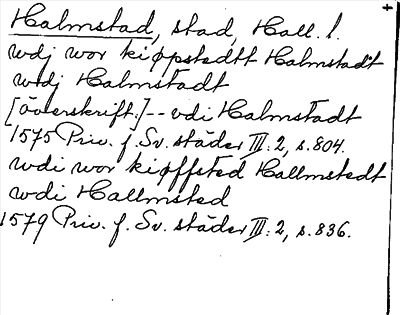 Halmstad, stad, Hall. l.
wdj wor kiøpstedtt Halmstadt
wtdj Halmstadt
[överskrift.] -- vdi Halmstadt
1575 Priv. f. Sv. städer III: 2, s. 804.
wdi wor kiøffsted Hallmstedt
wdi Hallmsted
1579 Priv. f. Sv. städer III: 2, s. 836.